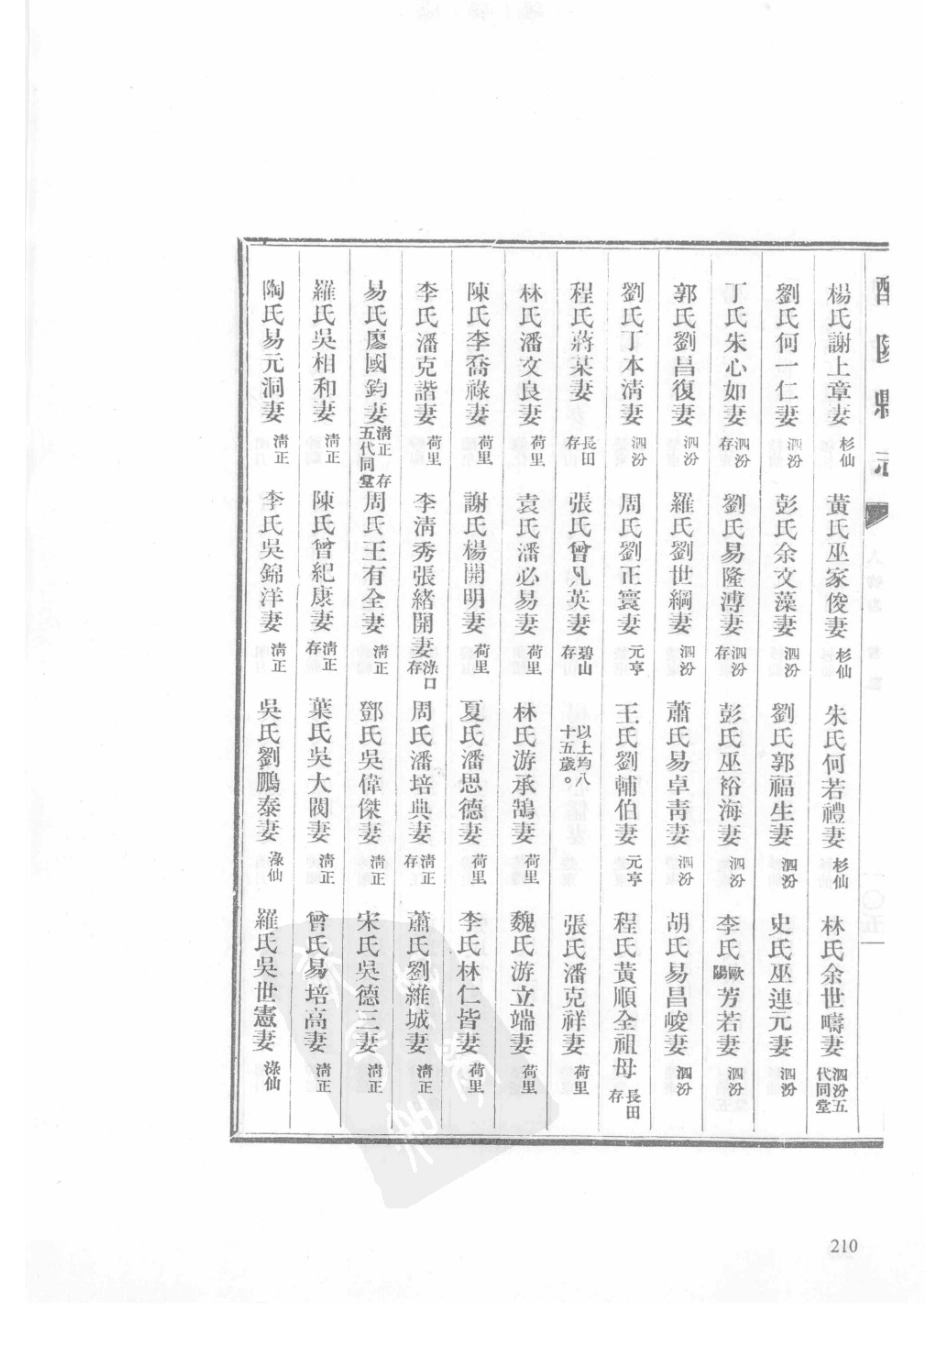 醴陵縣志
楊氏謝上章妻 杉仙 黃氏巫家俊妻 杉仙 朱氏何若禮妻 杉仙 林氏余世疇妻 泗汾五代同堂
劉氏何一仁妻 泗汾 彭氏余文藻妻 泗汾 劉氏郭福生妻 泗汾 史氏巫連元妻 泗汾
丁氏朱心如妻 泗汾存 劉氏易隆溥妻 泗汾存 彭氏巫裕海妻 泗汾 李氏歐陽芳若妻 泗汾
郭氏劉昌復妻 泗汾 羅氏劉世綱妻 泗汾 蕭氏易卓靑妻 泗汾 胡氏易昌峻妻 泗汾
劉氏丁本淸妻 泗汾 周氏劉正寰妻 元亨 王氏劉輔伯妻 元亨 程氏黃順全祖母 長田存
程氏蔣某妻 長田存 張氏曾凡英妻 碧山存 以上均八十五歲。 張氏潘克祥妻 荷里
林氏潘文良妻 荷里 袁氏潘必易妻 荷里 林氏游承鵠妻 荷里 魏氏游立端妻 荷里
陳氏李喬祿妻 荷里 謝氏楊開明妻 荷里 夏氏潘思德妻 荷里 李氏林仁皆妻 荷里
李氏潘克諧妻 荷里 李淸秀張緒開妻 淥口存 周氏潘培典妻 淸正存 蕭氏劉維城妻 淸正
易氏廖國鈞妻 淸正存五代同堂 周氏王有全妻 淸正 鄧氏吳偉傑妻 淸正 宋氏吳德三妻 淸正
羅氏吳相和妻 淸正 陳氏曾紀康妻 淸正存 葉氏吳大閥妻 淸正 曾氏易培高妻 淸正
陶氏易元洞妻 淸正 李氏吳錦洋妻 淸正 吳氏劉鵬泰妻 淥仙 羅氏吳世憲妻 淥仙
210